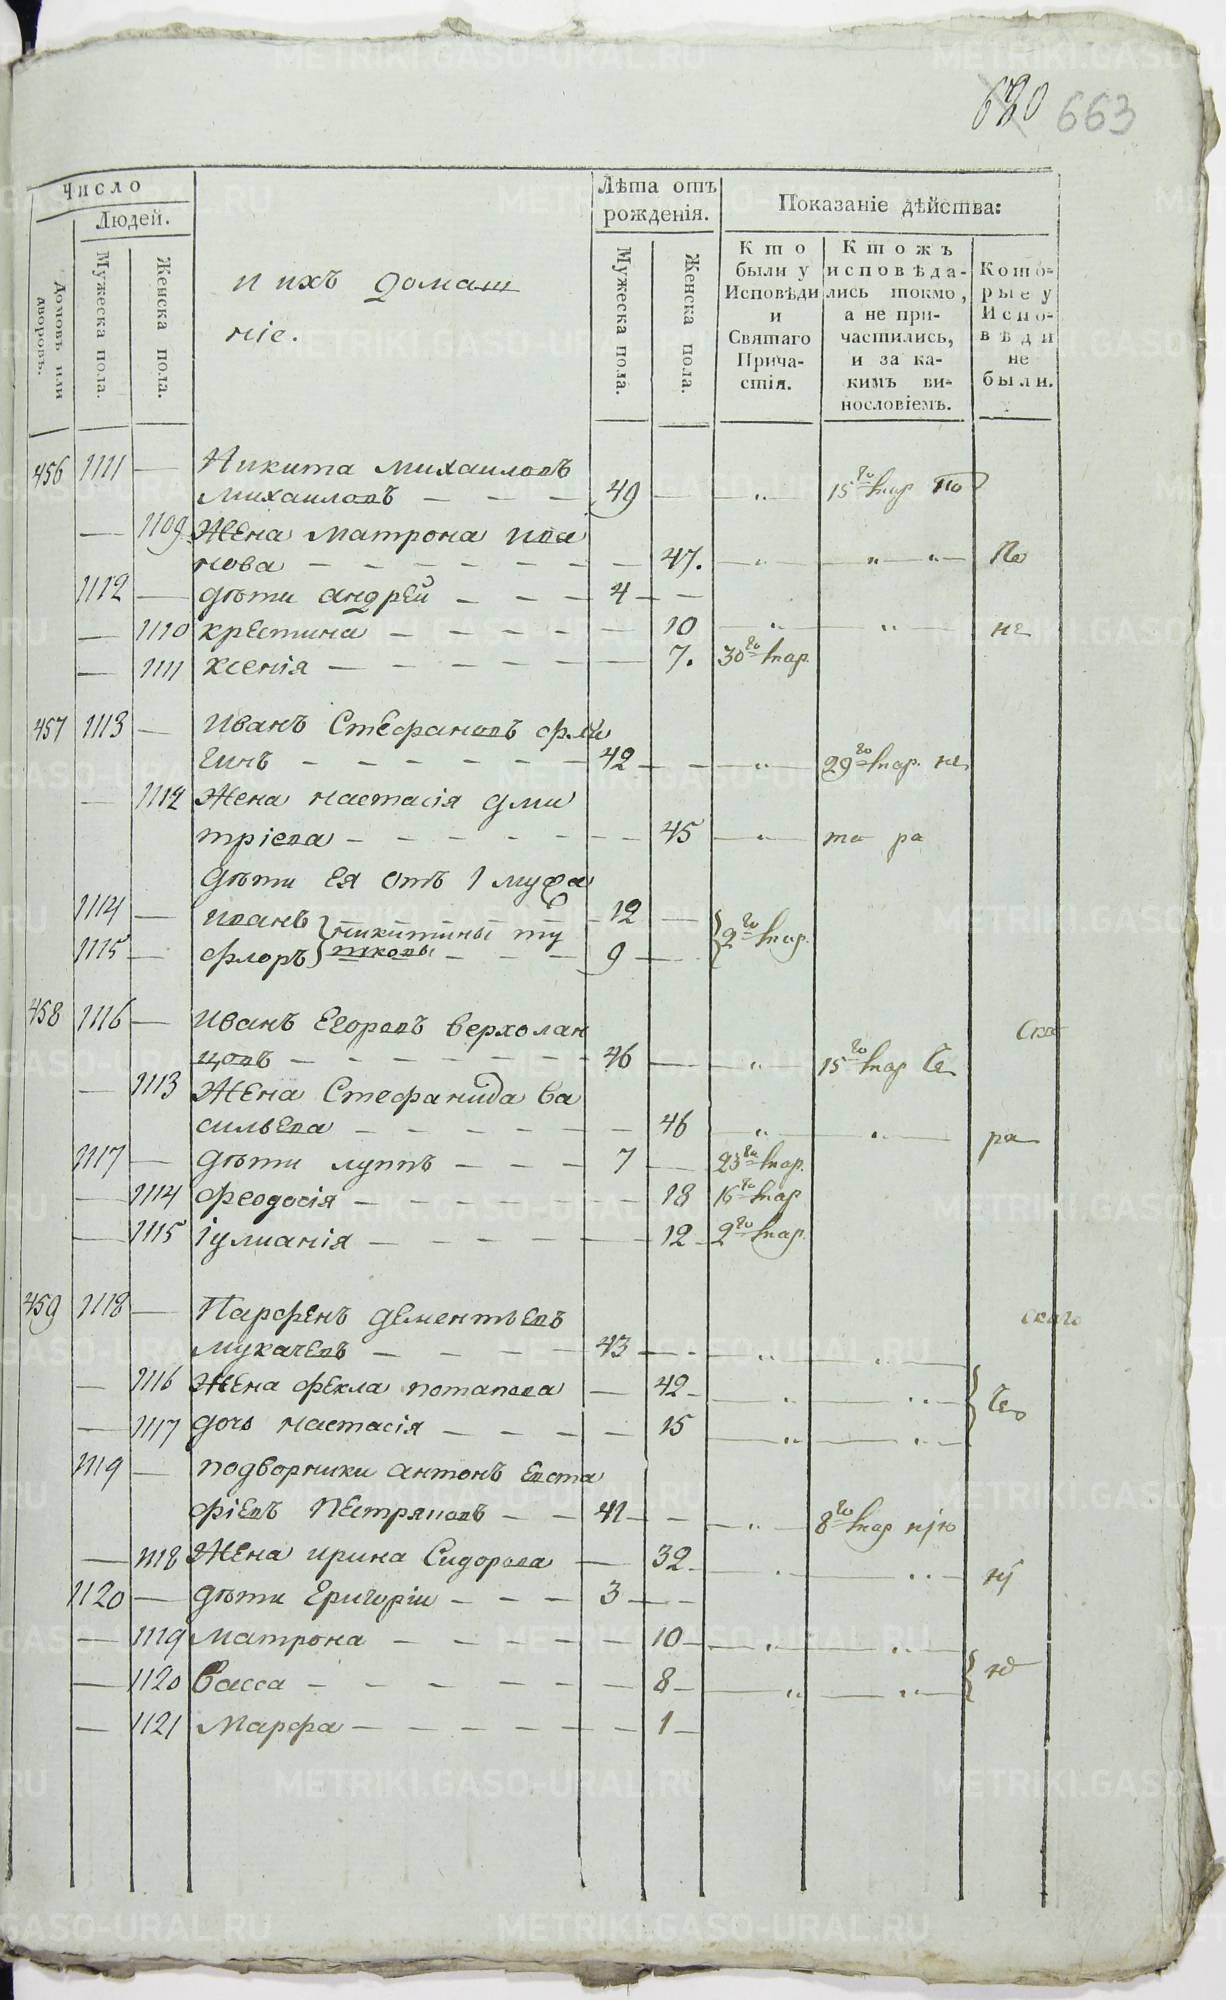 620 663
Число
Людей.
Домовъ или дворовъ.
Мужеска пола.
Женска пола.
и ихъ домаш
ніе.
Лѣта отъ
рожденія.
Мужеска пола.
Женска пола.
Показаніе дѣйства:
Кто
были у
Исповѣди
и
Святаго
Прича-
стія.
Ктожъ
исповѣда-
лись токмо,
а не при-
частились,
и за ка-
кимъ ви-
нословіемъ.
Кото-
рые у
Испо-
вѣди
не
были.
456 1111 — Никита Михаиловъ
Михаиловъ — — — 49 — — „ — 15го мар по
— 1109 Жена Матрона ива
нова — — — — — — — 47. — „ — — „ „ — по
1112 — дѣти андрей — — — 4 — —
— 1110 крестина — — — — — 10 — „ — „ — не
— 1111 ксенія — — — — — — 7. 30го мар.
457 1113 — Иванъ Стефановъ фляг
гинъ — — — — — — 42 — — — „ — 29го мар. не
— 1112 Жена настасія дми
тріева — — — — — — — 45 — „ — та ра
дѣти ея отъ 1 мужа
1114 — иванъ — 12 —
никитины ту
1115 — флоръ — — — 9 — — 2го мар.
458 1116 — Иванъ Егоровъ верхолан
цовъ — — — — — — 46 — — „ — 15го мар
— 1113 Жена Стефанида ва
сильева — — — — — — 46 — „ — „ — ра
1117 — дѣти луппъ — — — 7 — 23го мар.
— 1114 феодосія — — — — — — 18 16го мар
— 1115 Іулианія — — — — — — 12 2го мар.
459 1118 — Парфенъ дементьевъ
мукачевъ — — — — 43 — — — „ — „ —
— 1116 Жена фекла потапова — 42 — — „ — „ —
— 1117 дочь настасія — — — — — 15 — „ — „ —
1119 — подворники антонъ евста
фіевъ Пестряковъ — — 41 — — — „ — 8го мар
— 1118 Жена ирина Сидорова — 32 — — „ — „ —
1120 — дѣти Григоріи — — — 3 — —
— 1119 Матрона — — — — — 10 — — „ — „ —
— 1120 васса — — — — — — 8 — — „ — „ —
— 1121 Марфа — — — — — — 1 —
METRIKI.GASO-URAL.RU